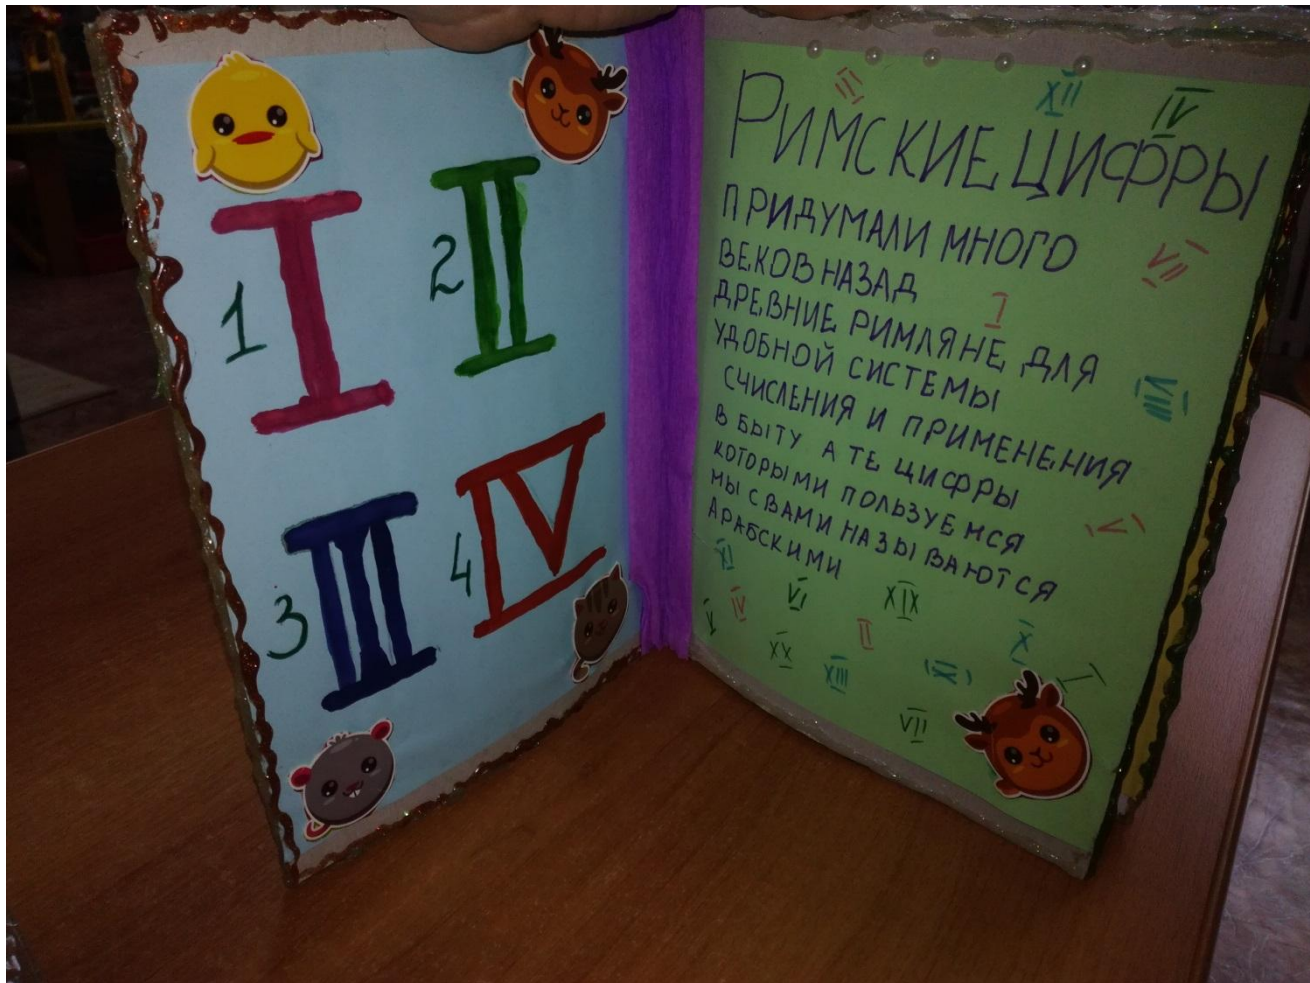 1 I
2 II
3 III
4 IV
II XII IV
РИМСКИЕ ЦИФРЫ
ПРИДУМАЛИ МНОГО
VII
ВЕКОВ НАЗАД
I
ДРЕВНИЕ РИМЛЯНЕ ДЛЯ
УДОБНОЙ СИСТЕМЫ
VIII
СЧИСЛЕНИЯ И ПРИМЕНЕНИЯ
В БЫТУ А ТЕ ЦИФРЫ
КОТОРЫМИ ПОЛЬЗУЕМСЯ
V
МЫ С ВАМИ НАЗЫВАЮТСЯ
АРАБСКИМИ
XI
V IV VI XIX
XX II X
XIII I
VII